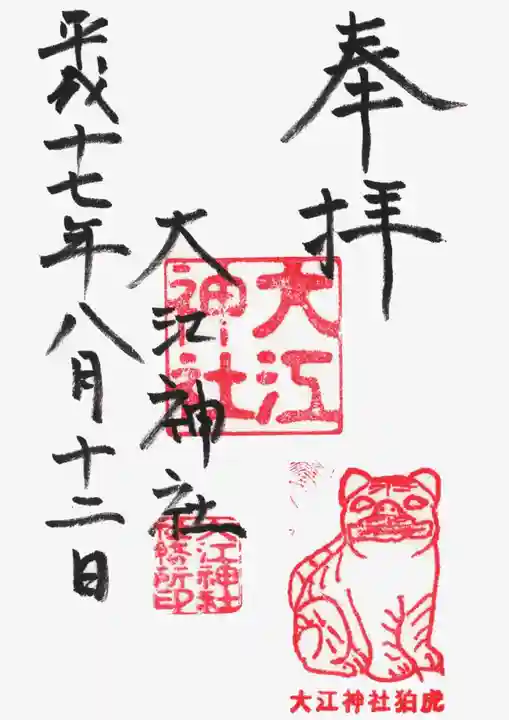 奉拝
大江
神社
大江神社
大江神社
社務所印
平成十七年八月十二日
大江神社狛虎